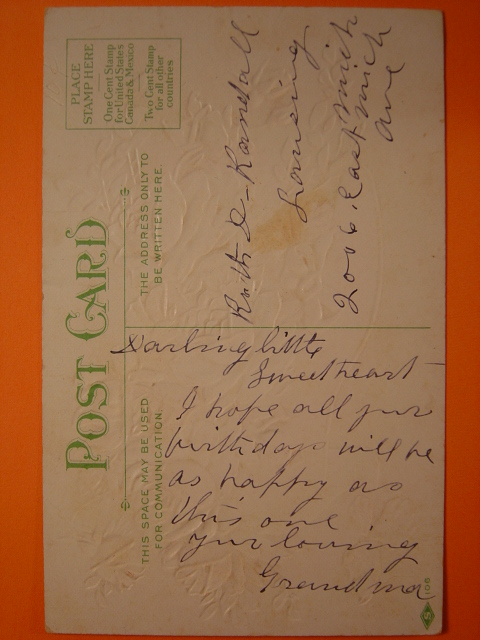 POST CARD
PLACE
STAMP HERE
One Cent Stamp
for United States
Canada & Mexico
Two Cent Stamp
for all other
countries
THIS SPACE MAY BE USED
FOR COMMUNICATION.
THE ADDRESS ONLY TO
BE WRITTEN HERE.
Darling little
Sweetheart
I hope all your
birthdays will be
as happy as
this one
your loving
Grandma
Ruth D. Randall
Lansing
Mich
2006. East Mich
Ave
S
106